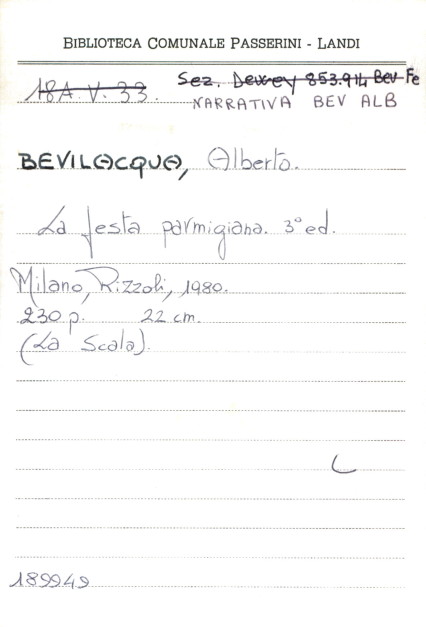 BIBLIOTECA COMUNALE PASSERINI - LANDI
18A. V. 33. Sez. Dewey 853.914 Bev Fe
NARRATIVA BEV ALB
BEVILACQUA, Alberto.
La festa parmigiana. 3° ed.
Milano, Rizzoli, 1980.
230 p. 22 cm.
(La Scala).
189949